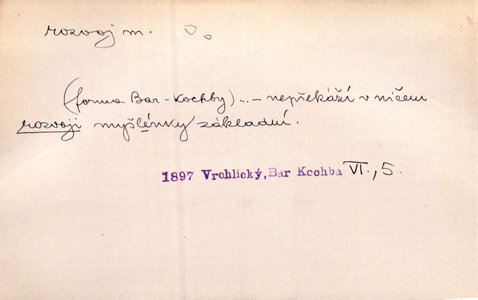 rozvoj m.
(forma Bar-Kochby)... – nepřekáží v ničem
rozvoji myšlénky základní.
1897 Vrchlický, Bar Kochba VI., 5.